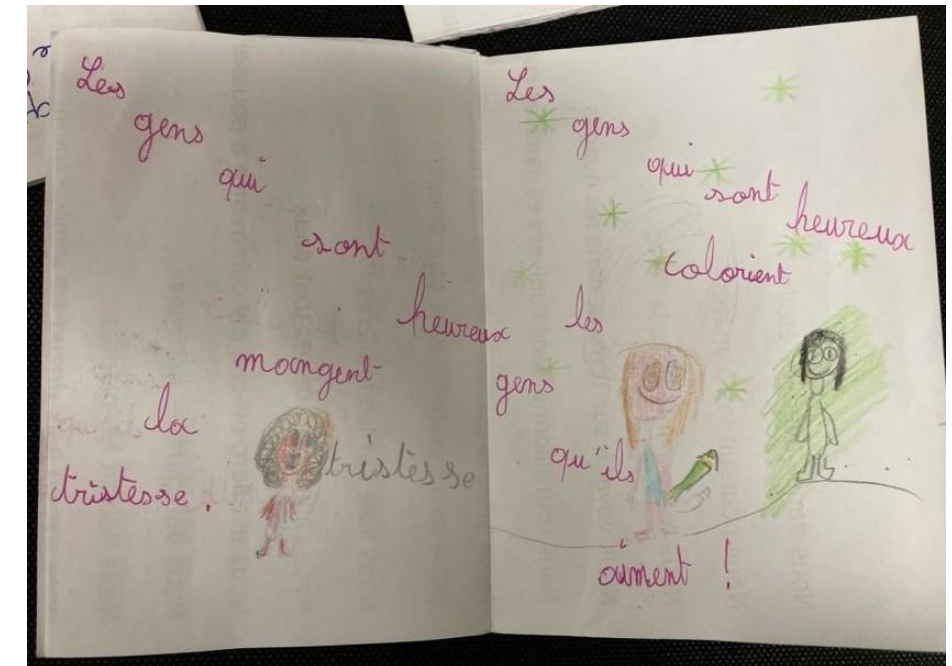 Les
gens
qui
sont
heureux
mangent
la
tristesse.
tristesse
Les
gens
qui
sont
heureux
colorient
les
gens
qu'ils
aiment !